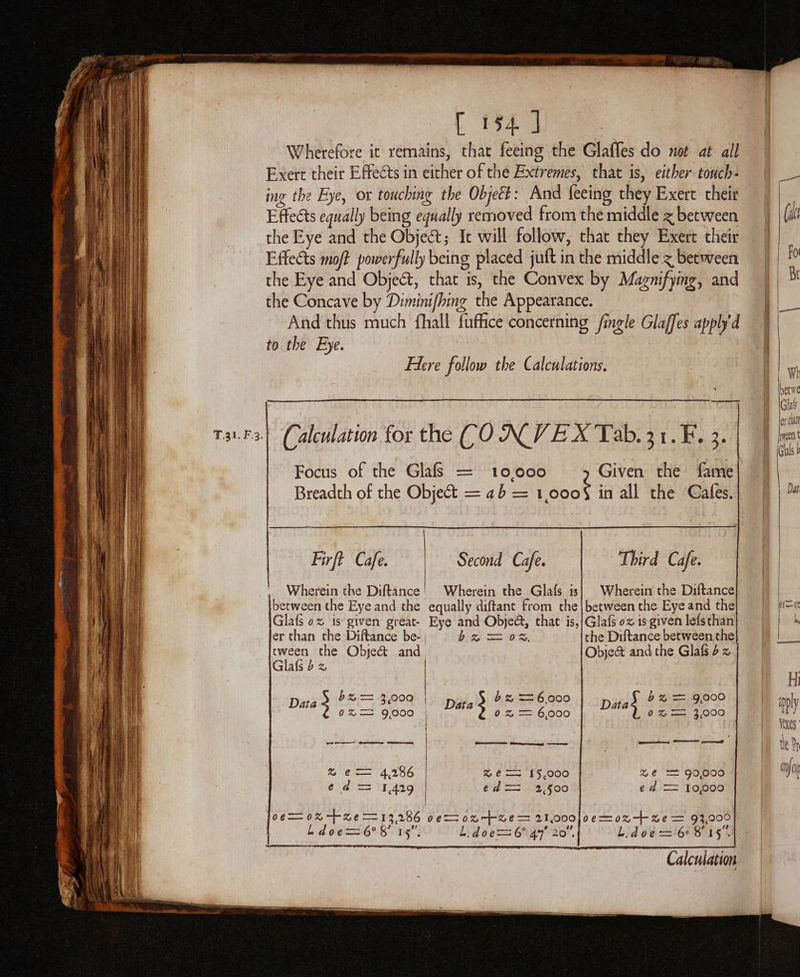 [ 154 ]
Wherefore it remains, that ſeeing the Glaſſes do not at all
Exert their Effects in either of the Extremes, that is, either touch-
ing the Eye, or touching the Object: And ſeeing they Exert their
Effects equally being equally removed from the middle z between
the Eye and the Object; It will follow, that they Exert their
Effects moſt powerfully being placed juſt in the middle z between
the Eye and Object, that is, the Convex by Magnifying, and
the Concave by Diminiſhing the Appearance.
And thus much ſhall ſuffice concerning ſingle Glaſſes apply'd
to the Eye.
Here follow the Calculations.
T.31. F.3. Calculation for the CONVEX Tab. 31. F. 3.
Focus of the Glaſs = 10,000 } Given the ſame
Breadth of the Object = ab = 1,000 } in all the Caſes.
Firſt Caſe.
Wherein the Diſtance
between the Eye and the
Glaſs oz is given great-
er than the Diſtance be-
tween the Object and
Glaſs b z
Data { bz = 3,000
oz = 9,000
z e = 4,286
e d = 1,429
oe = oz + ze = 13,286
L doe = 6° 8' 15".
Second Caſe.
Wherein the Glaſs is
equally diſtant from the
Eye and Object, that is,
b z = oz,
Data { bz = 6,000
oz = 6,000
z e = 15,000
e d = 2,500
oe = oz + ze = 21,000
L. doe = 6° 47' 20".
Third Caſe.
Wherein the Diſtance
between the Eye and the
Glaſs oz is given leſs than
the Diſtance between the
Object and the Glaſs b z
Data { bz = 9,000
oz = 3,000
z e = 90,000
e d = 10,000
oe = oz + ze = 93,000
L. doe = 6° 8' 15".
Calculation